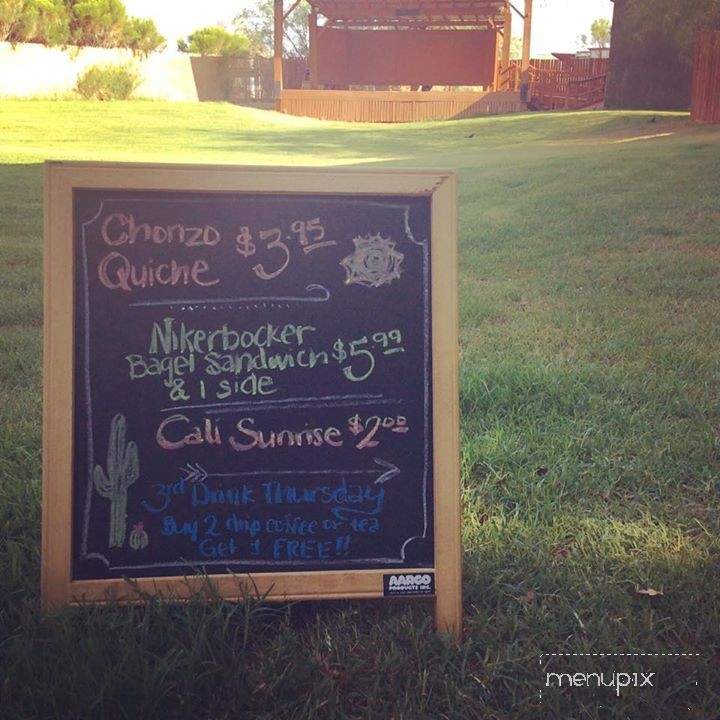 Chorizo $3.95
Quiche
Nikerbocker
Bagel Sandwich $5.99
& 1 side
Cali Sunrise $2.00
3rd Drink Thursday
Buy 2 drip coffee or tea
Get 1 FREE!!
AARCO
PRODUCTS INC.
menupix